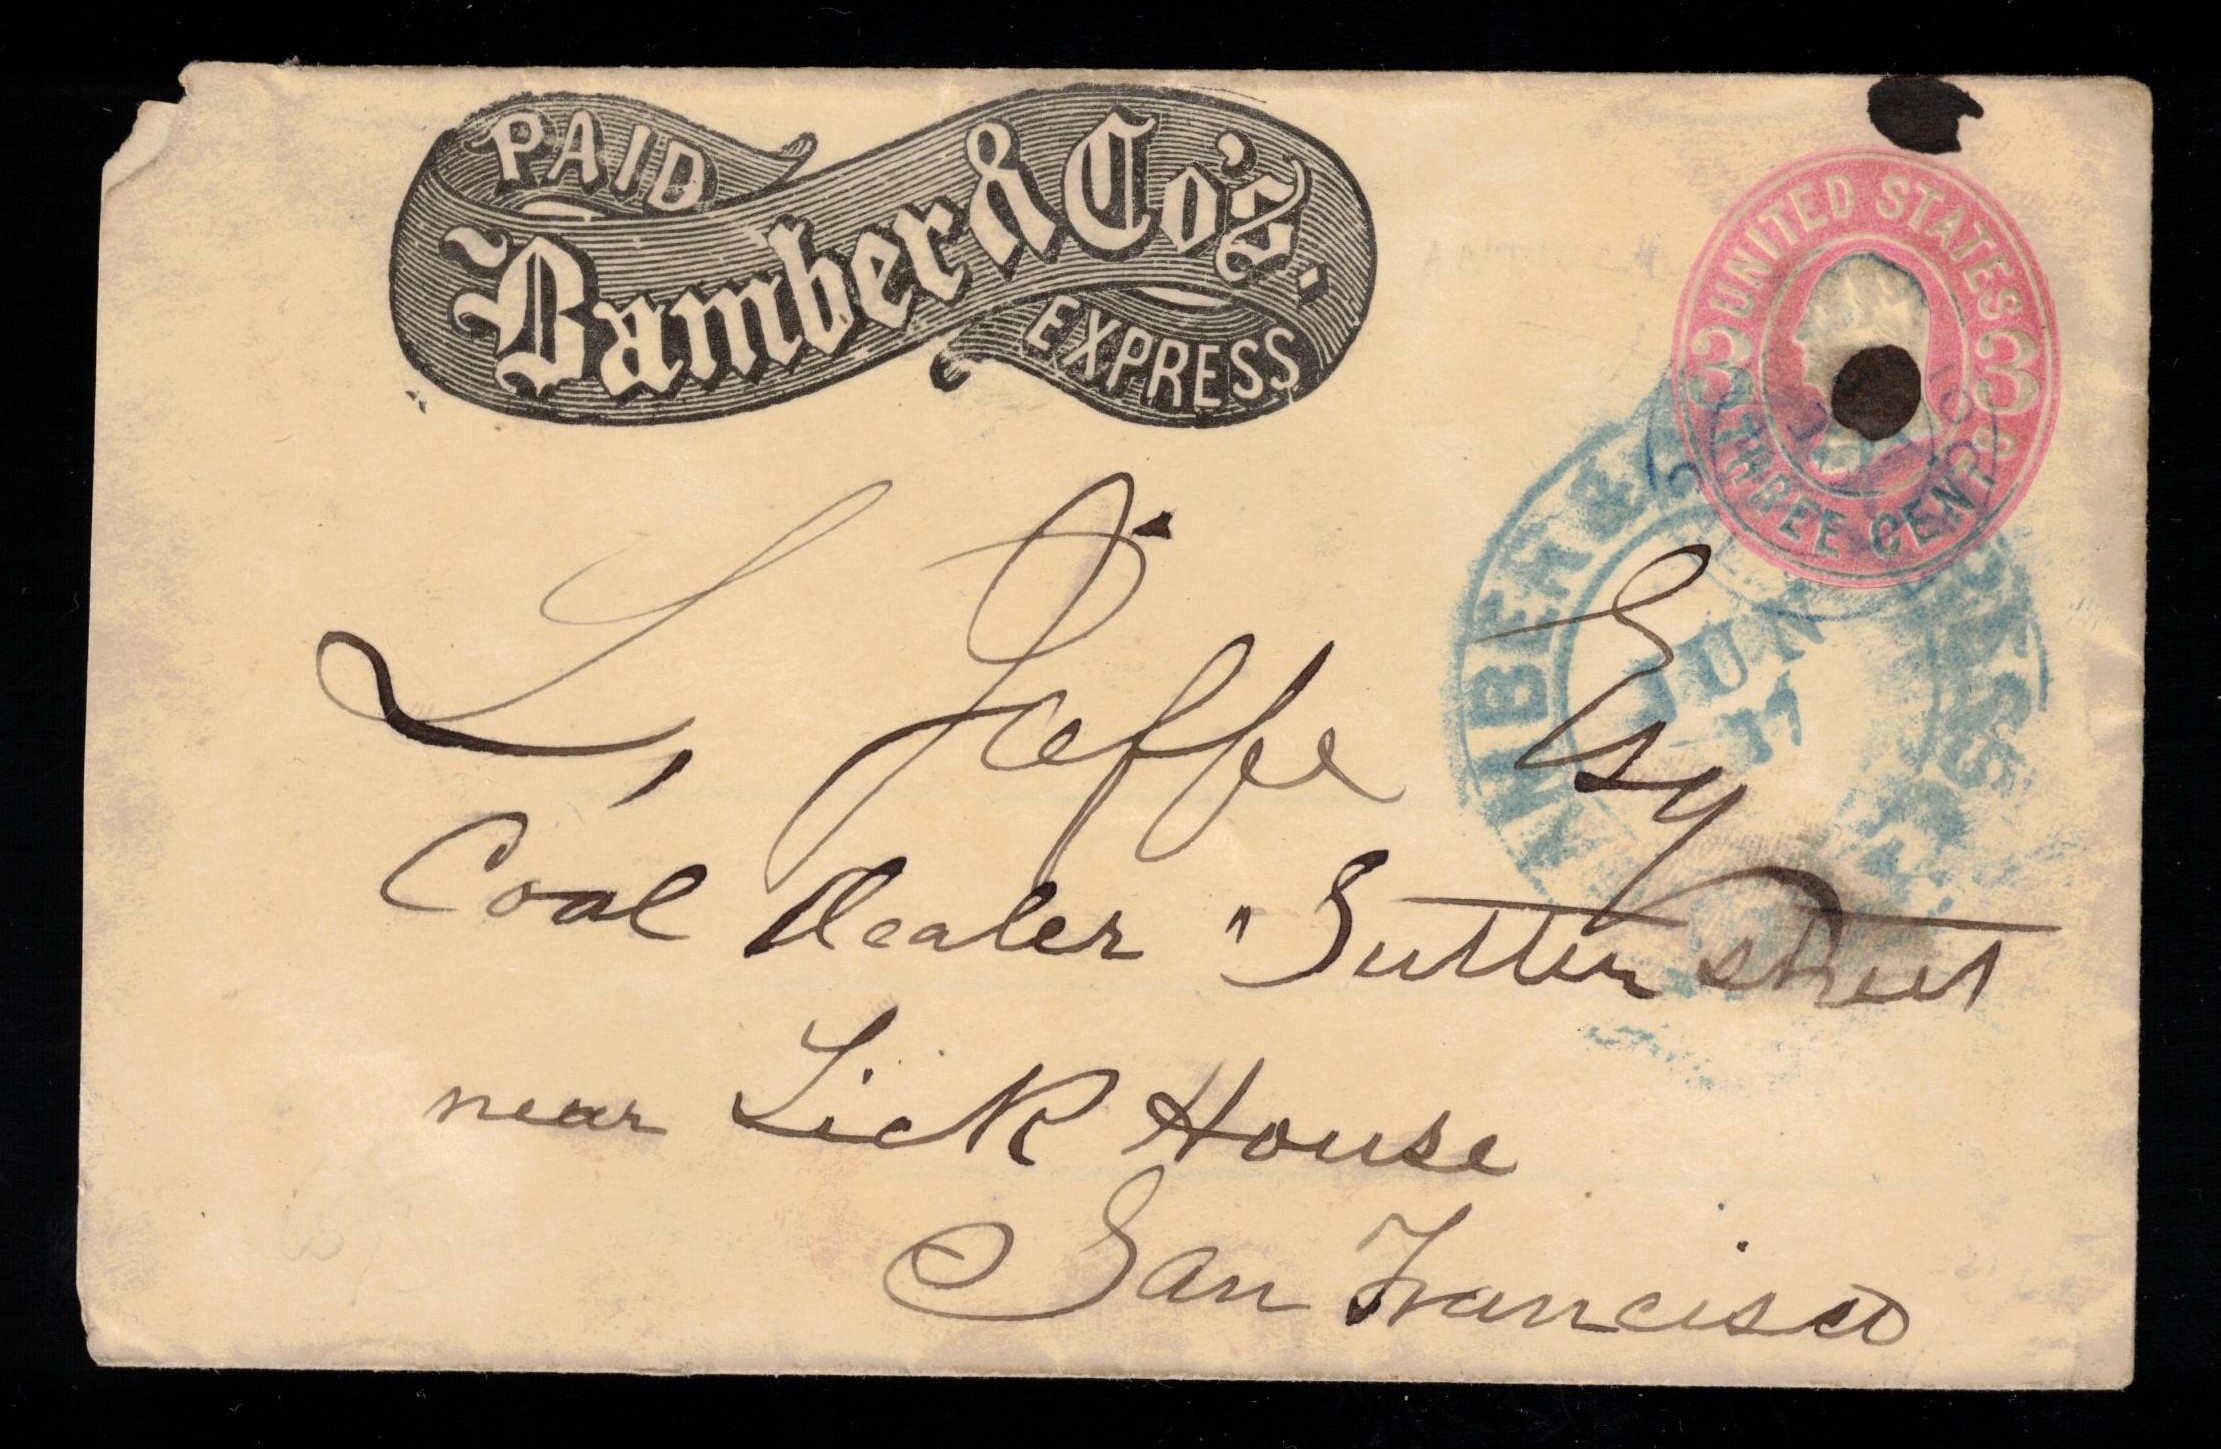 PAID
Bamber & Co's.
EXPRESS
UNITED STATES
3 3
THREE CENTS
JUN
17
L, Jaffe Esq
Coal Dealer "Sutter street
near Lick House
San Francisco